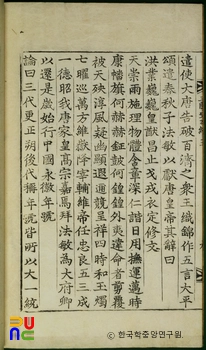 遣使大唐告破百濟之衆王織錦作五言大平
頌遣春秋子法敏以獻唐皇帝其辭曰大唐開
洪業巍巍皇猷昌止戈戎衣定修文繼百王統
天崇雨施理物體含章深仁諧日月撫運邁時
康幡旗何赫赫鉦鼓何鍠鍠外夷違命者翦覆
被天殃淳風凝幽顯遐邇競呈祥四時和玉燭
七曜巡萬方維嶽降宰輔維帝任忠良五三成
一德昭我唐家皇高宗嘉焉拜法敏爲大府卿
以還是歲始行中國永徽年號
論曰三代更正朔後代稱年號皆所以大一統
한국학중앙연구원